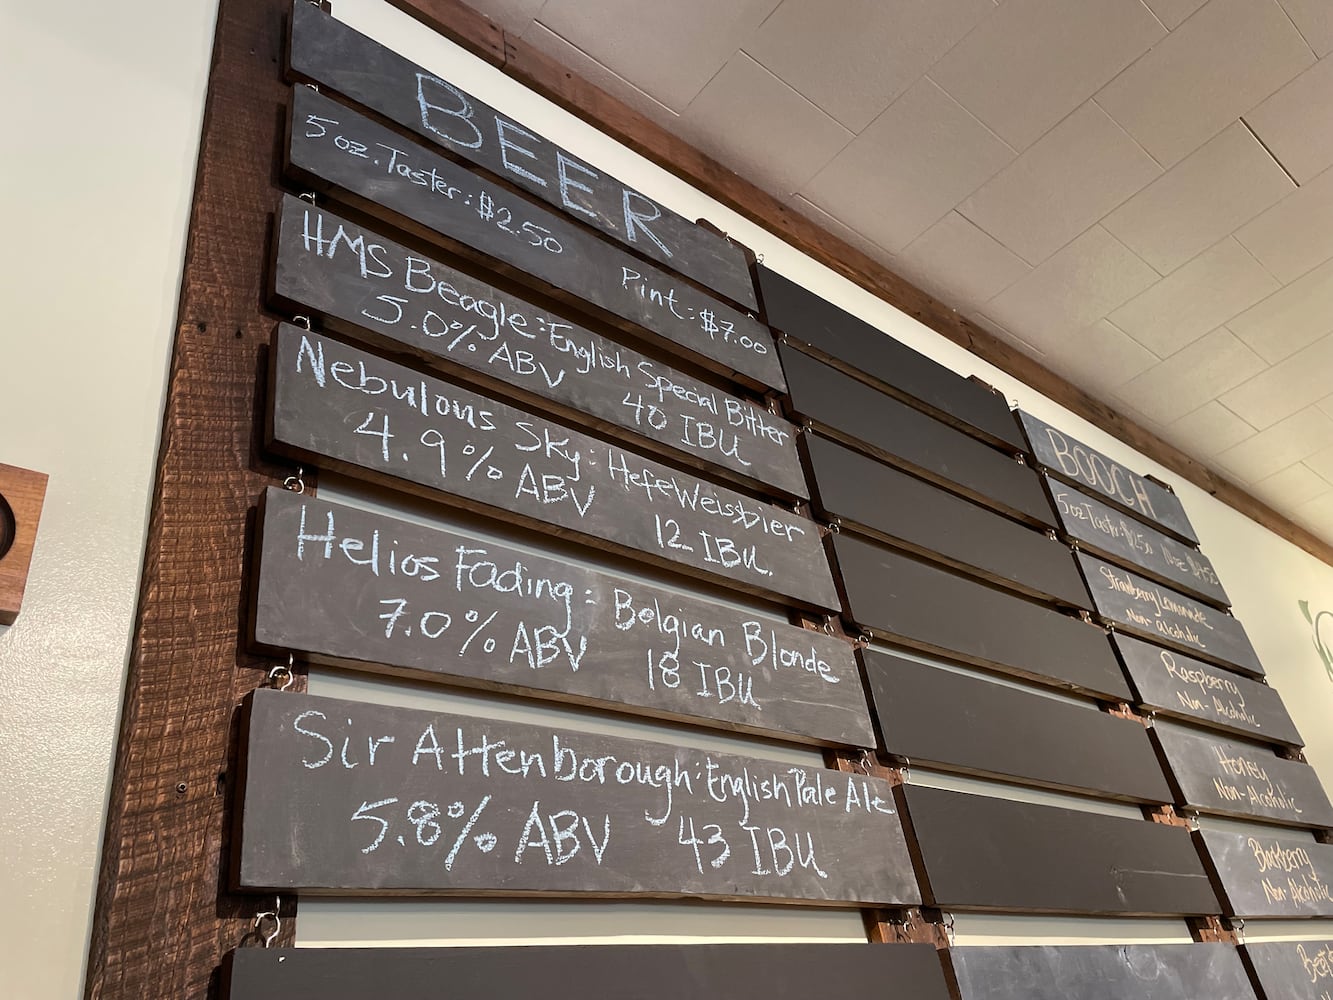 BEER
5oz. Taster: $2.50 Pint: $7.00
HMS Beagle: English Special Bitter
5.0% ABV 40 IBU
Nebulous Sky: HefeWeissbier
4.9% ABV 12 IBU.
Helios Fading: Belgian Blonde
7.0% ABV 18 IBU
Sir Attenborough: English Pale Ale
5.8% ABV 43 IBU
BOOCH
5oz Taster: $2.50
Strawberry Lemonade
Non-Alcoholic
Raspberry
Non-Alcoholic
Honey
Non-Alcoholic
Blackberry
Non-Alcoholic